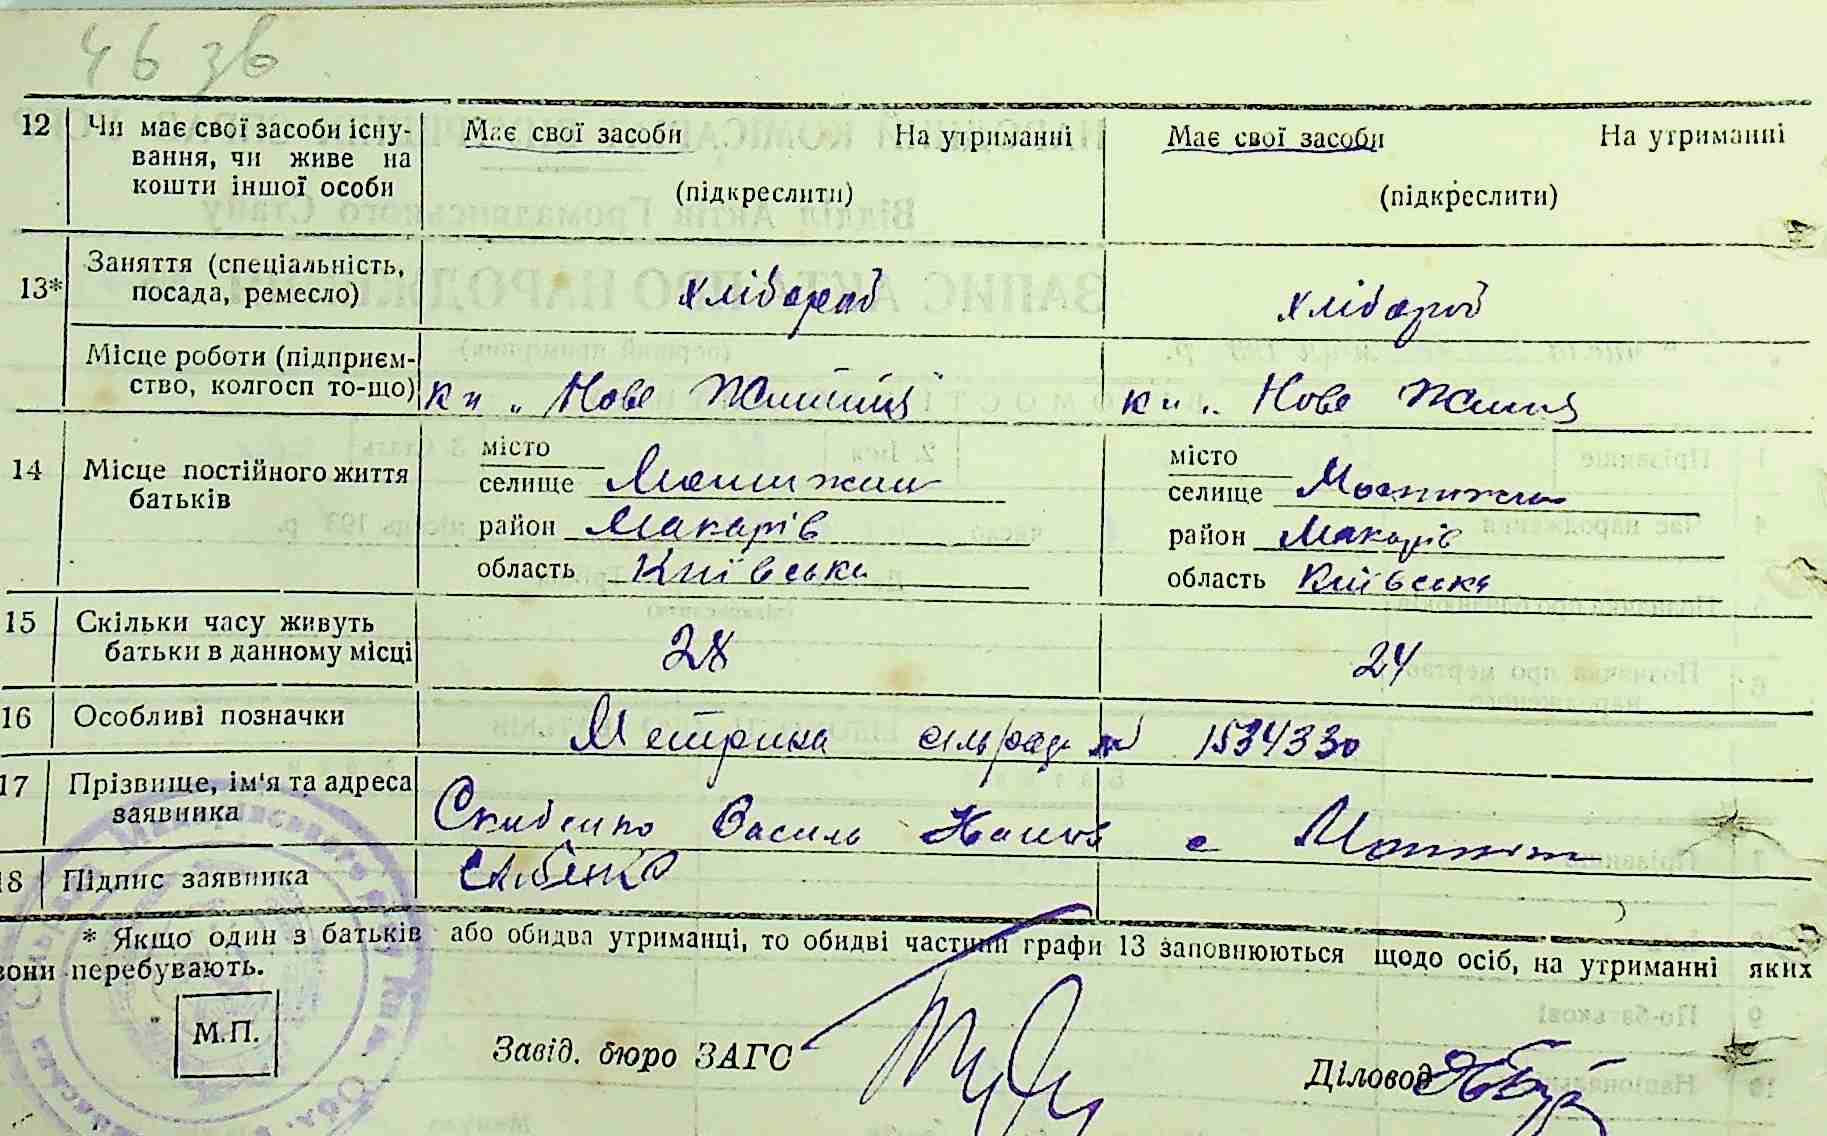 46 зв
12 Чи має свої засоби існу- Має свої засоби На утриманні Має свої засоби На утриманні
вання, чи живе на
кошти іншої особи (підкреслити) (підкреслити)
13* Заняття (спеціальність,
посада, ремесло) хлібороб хлібороб
Місце роботи (підприєм-
ство, колгосп то-що) к и „ Нове Життя к и „ Нове Життя
14 Місце постійного життя місто місто
батьків селище Мотижин селище Мотижин
район Макарів район Макарів
область Київська область Київська
15 Скільки часу живуть
батьки в данному місці 28 24
16 Особливі позначки Метрика сільради № 1534330
17 Прізвище, ім'я та адреса
заявника Скибенко Василь с Мотижин
18 Підпис заявника Скибенко
* Якщо один з батьків або обидва утриманці, то обидві частини графи 13 заповнюються щодо осіб, на утриманні яких
вони перебувають.
М.П.
Завід. бюро ЗАГС Діловод